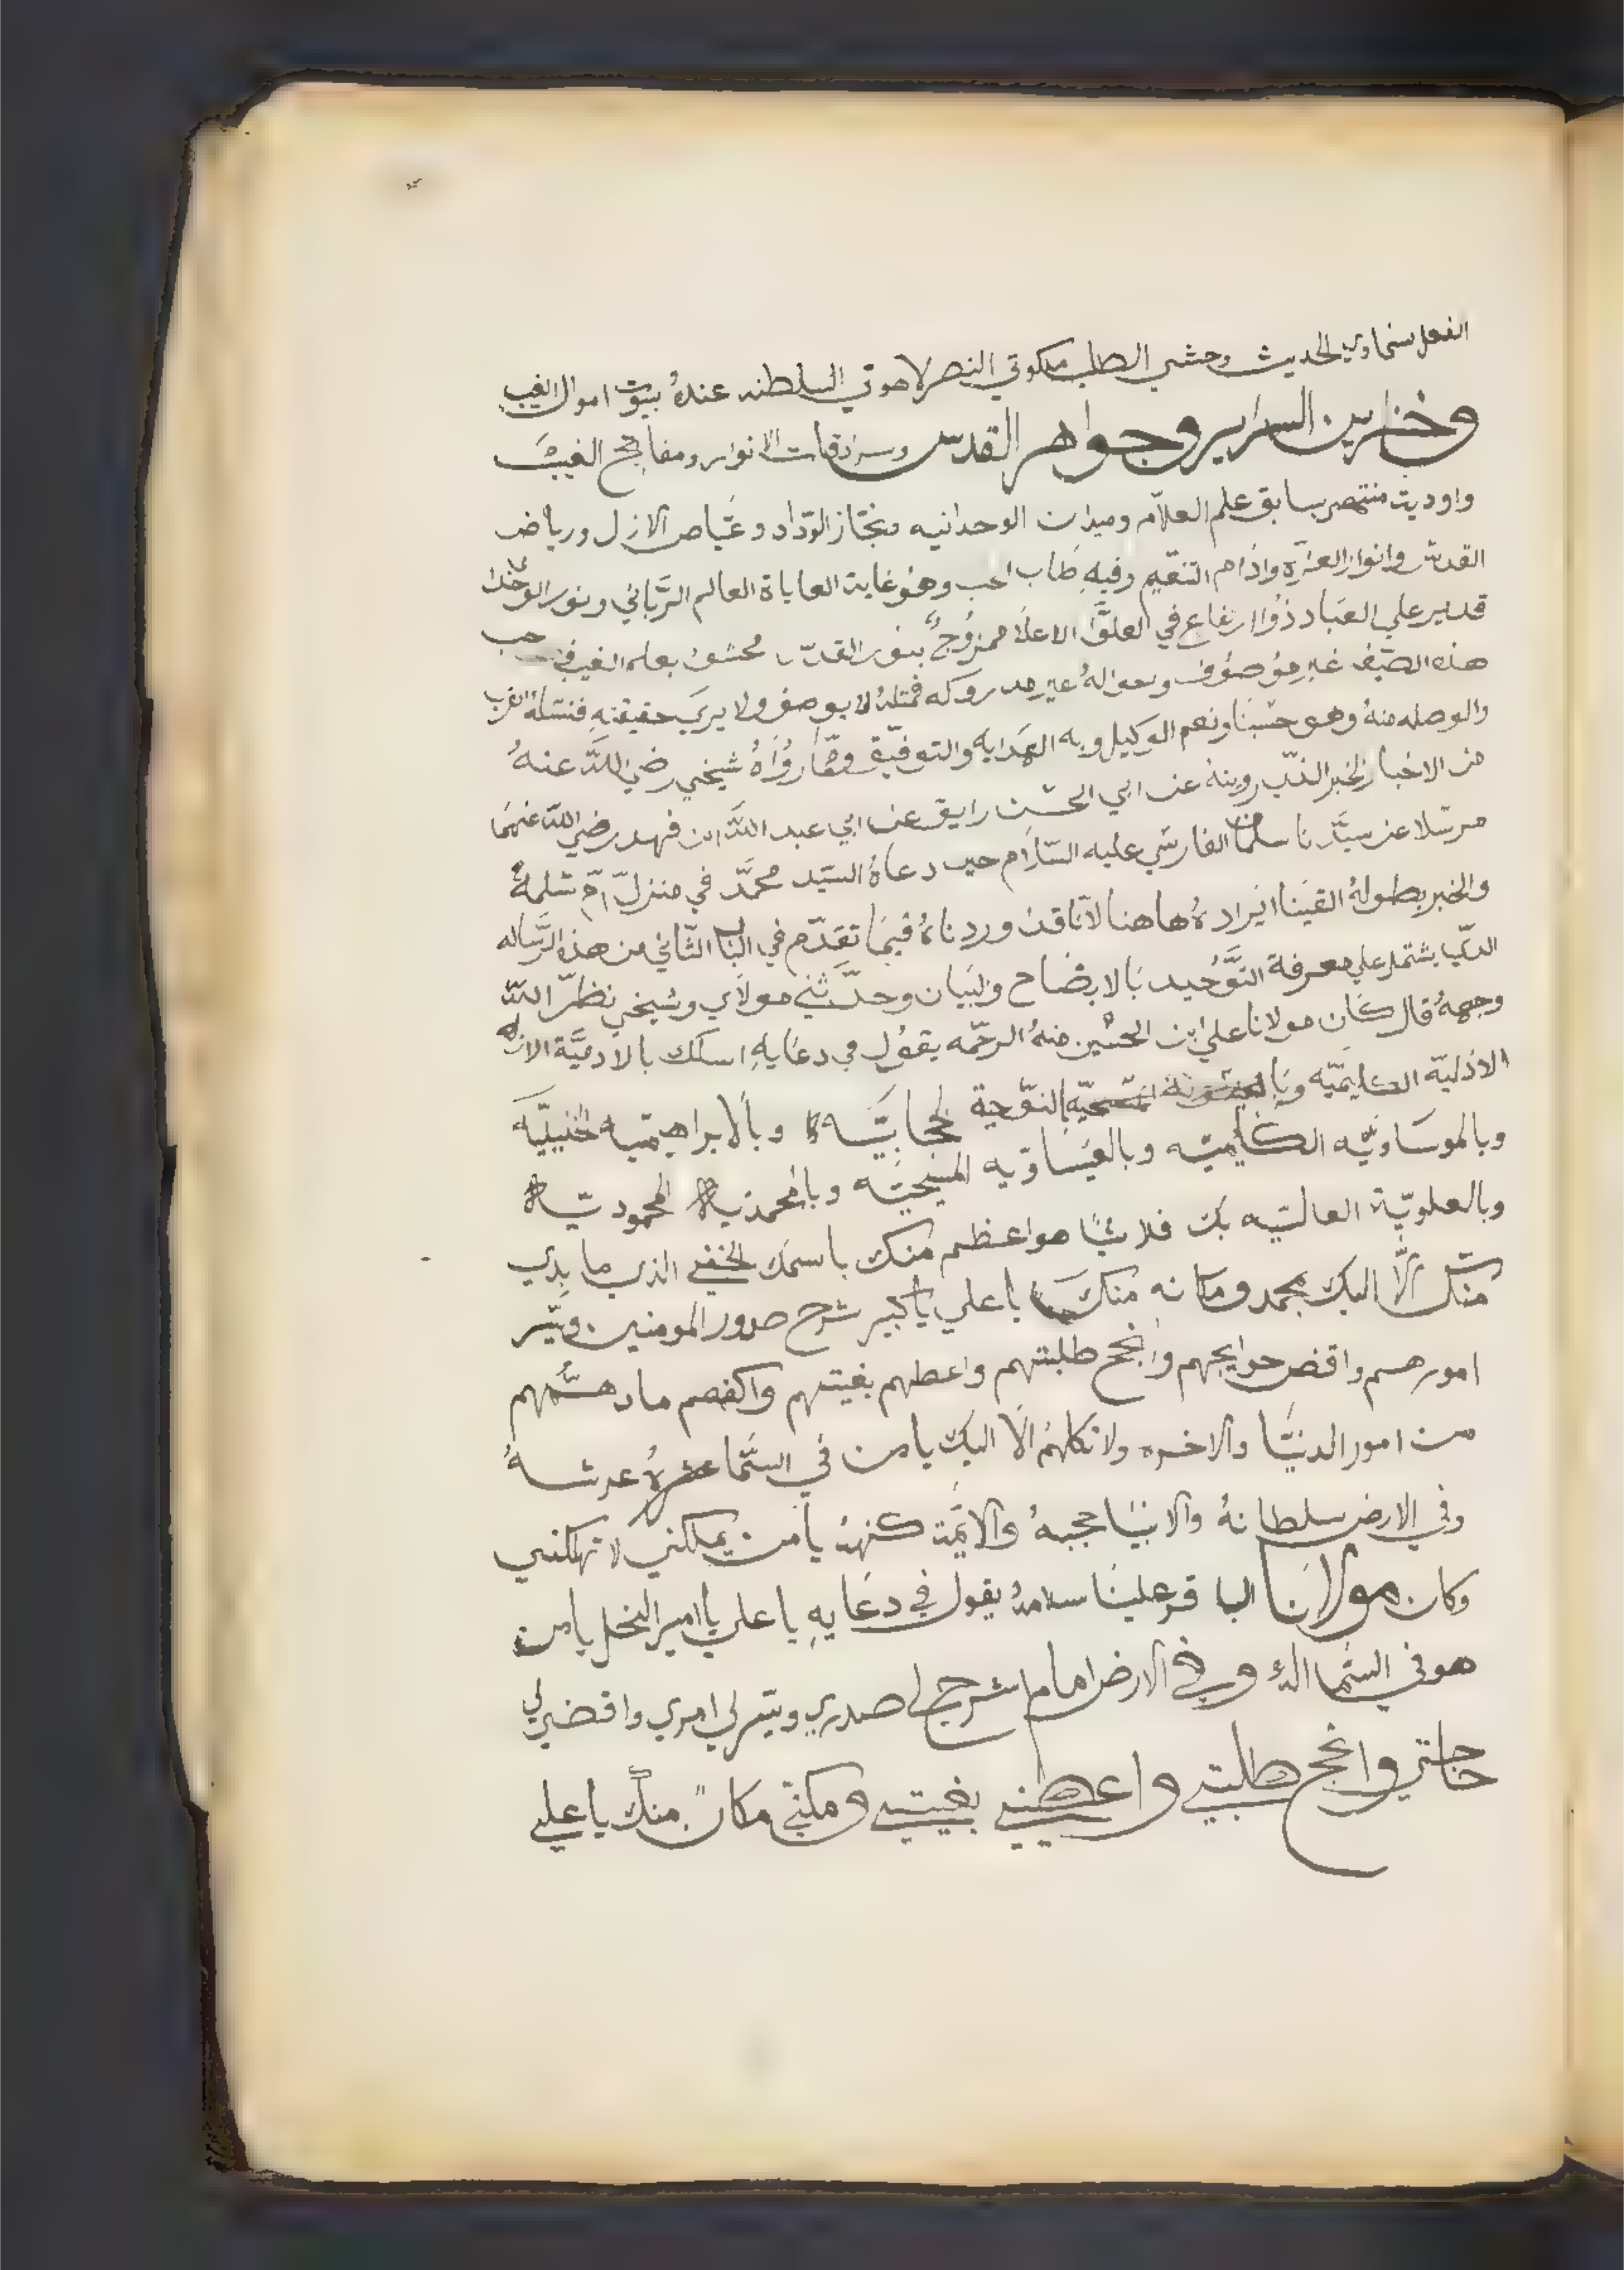 الفعل سماوي الحديث وحشي الطلب ملكوتي النصر لاهوتي السلطنه عندهُ بيوت اموال الغيب
وخزاين السراير وجواهر القدس وسرادقات الانوار ومفاتيح الغيب
واوديت منتهى سابق علم العلّام وميدان الوحدانيه الوداد وغياص الازل ورياض
القدس وانوار العزّه التنعّيم وفيهِ طاب الحب وهو غاية العالم الرّباني ونور
قدير علي العبادِ ذُوا ارتفاع في العلوّ الاعلا ممزُوجٌ بنور القدس بعلم الغيب
هذه الصّفه غير موصُوف غير مدروكه لا يوصف ولا يرى حقيقتهِ فنسئلهُ القرب
والوصله منهُ وهو حسبنا ونعم الوكيل وبه الهدايه والتوفيق وممّا رُواهُ شيخي رضي اللّه عنهُ
من الاخبار الخبر الذي روينهُ عن ابي الحسين رايق عن ابي عبد اللّه ابن فهد رضي اللّه عنهما
مرسلا عن سيّدنا سلمان الفارسي عليه السّلام حين دعاهُ السيّد محمّد في منزل امّ سلمه
والخبر بطولهُ القينا ايرادهُ هاهنا لانّا قد اوردناهُ فيما تقدّم في الباب الثاني من هذه الرّساله
الذي يشتمل علي معرفة التّوحيد بالايضاح والبيان وحدّثني مولاي وشيخي نظّر اللّه
وجههُ قال كان مولانا علي ابن الحسين منهُ الرحمه يقول في دعايهِ اسلك بالادميّة
الازليّة وبا النوّحية الحجابيّه وبالابراهيميه الخليليّه
وبالموساويّه الكليميّه وبالعيساويه المسيحيّه وبالمحمديه المحموديّه
وبالعلويّة العاليّه بك فلا شيًا هو اعظم منك باسمك الخفي الذي ما بدي
منك الّا اليك بمحمد ومكانه منك يا علي يا كبير شرح صدور المومنين ويسّر
امورهم واقض حوايجهم وانجح طلبتهم واعطهم بغيتهم واكفهم ما دهمّهم
من امور الدنيّا والاخره ولا تكلهُم الّا اليك يا من في السّما عرشهُ
وفي الارض سلطانهُ والانبيا حجبهُ والايمّة كنههُ يا من يملكني لا تهلكني
وكان مولانا الباقر علينا سلامهُ يقول في دعايهِ يا علي يا امير النحل يا من
هو في السّما اله وفي الارض امام اشرح لي صدري ويسّر لي امري واقضي لي
حاجتي وانجح طلبتي واعطني بغيتي ومكنّي مكانٍ منك يا علي